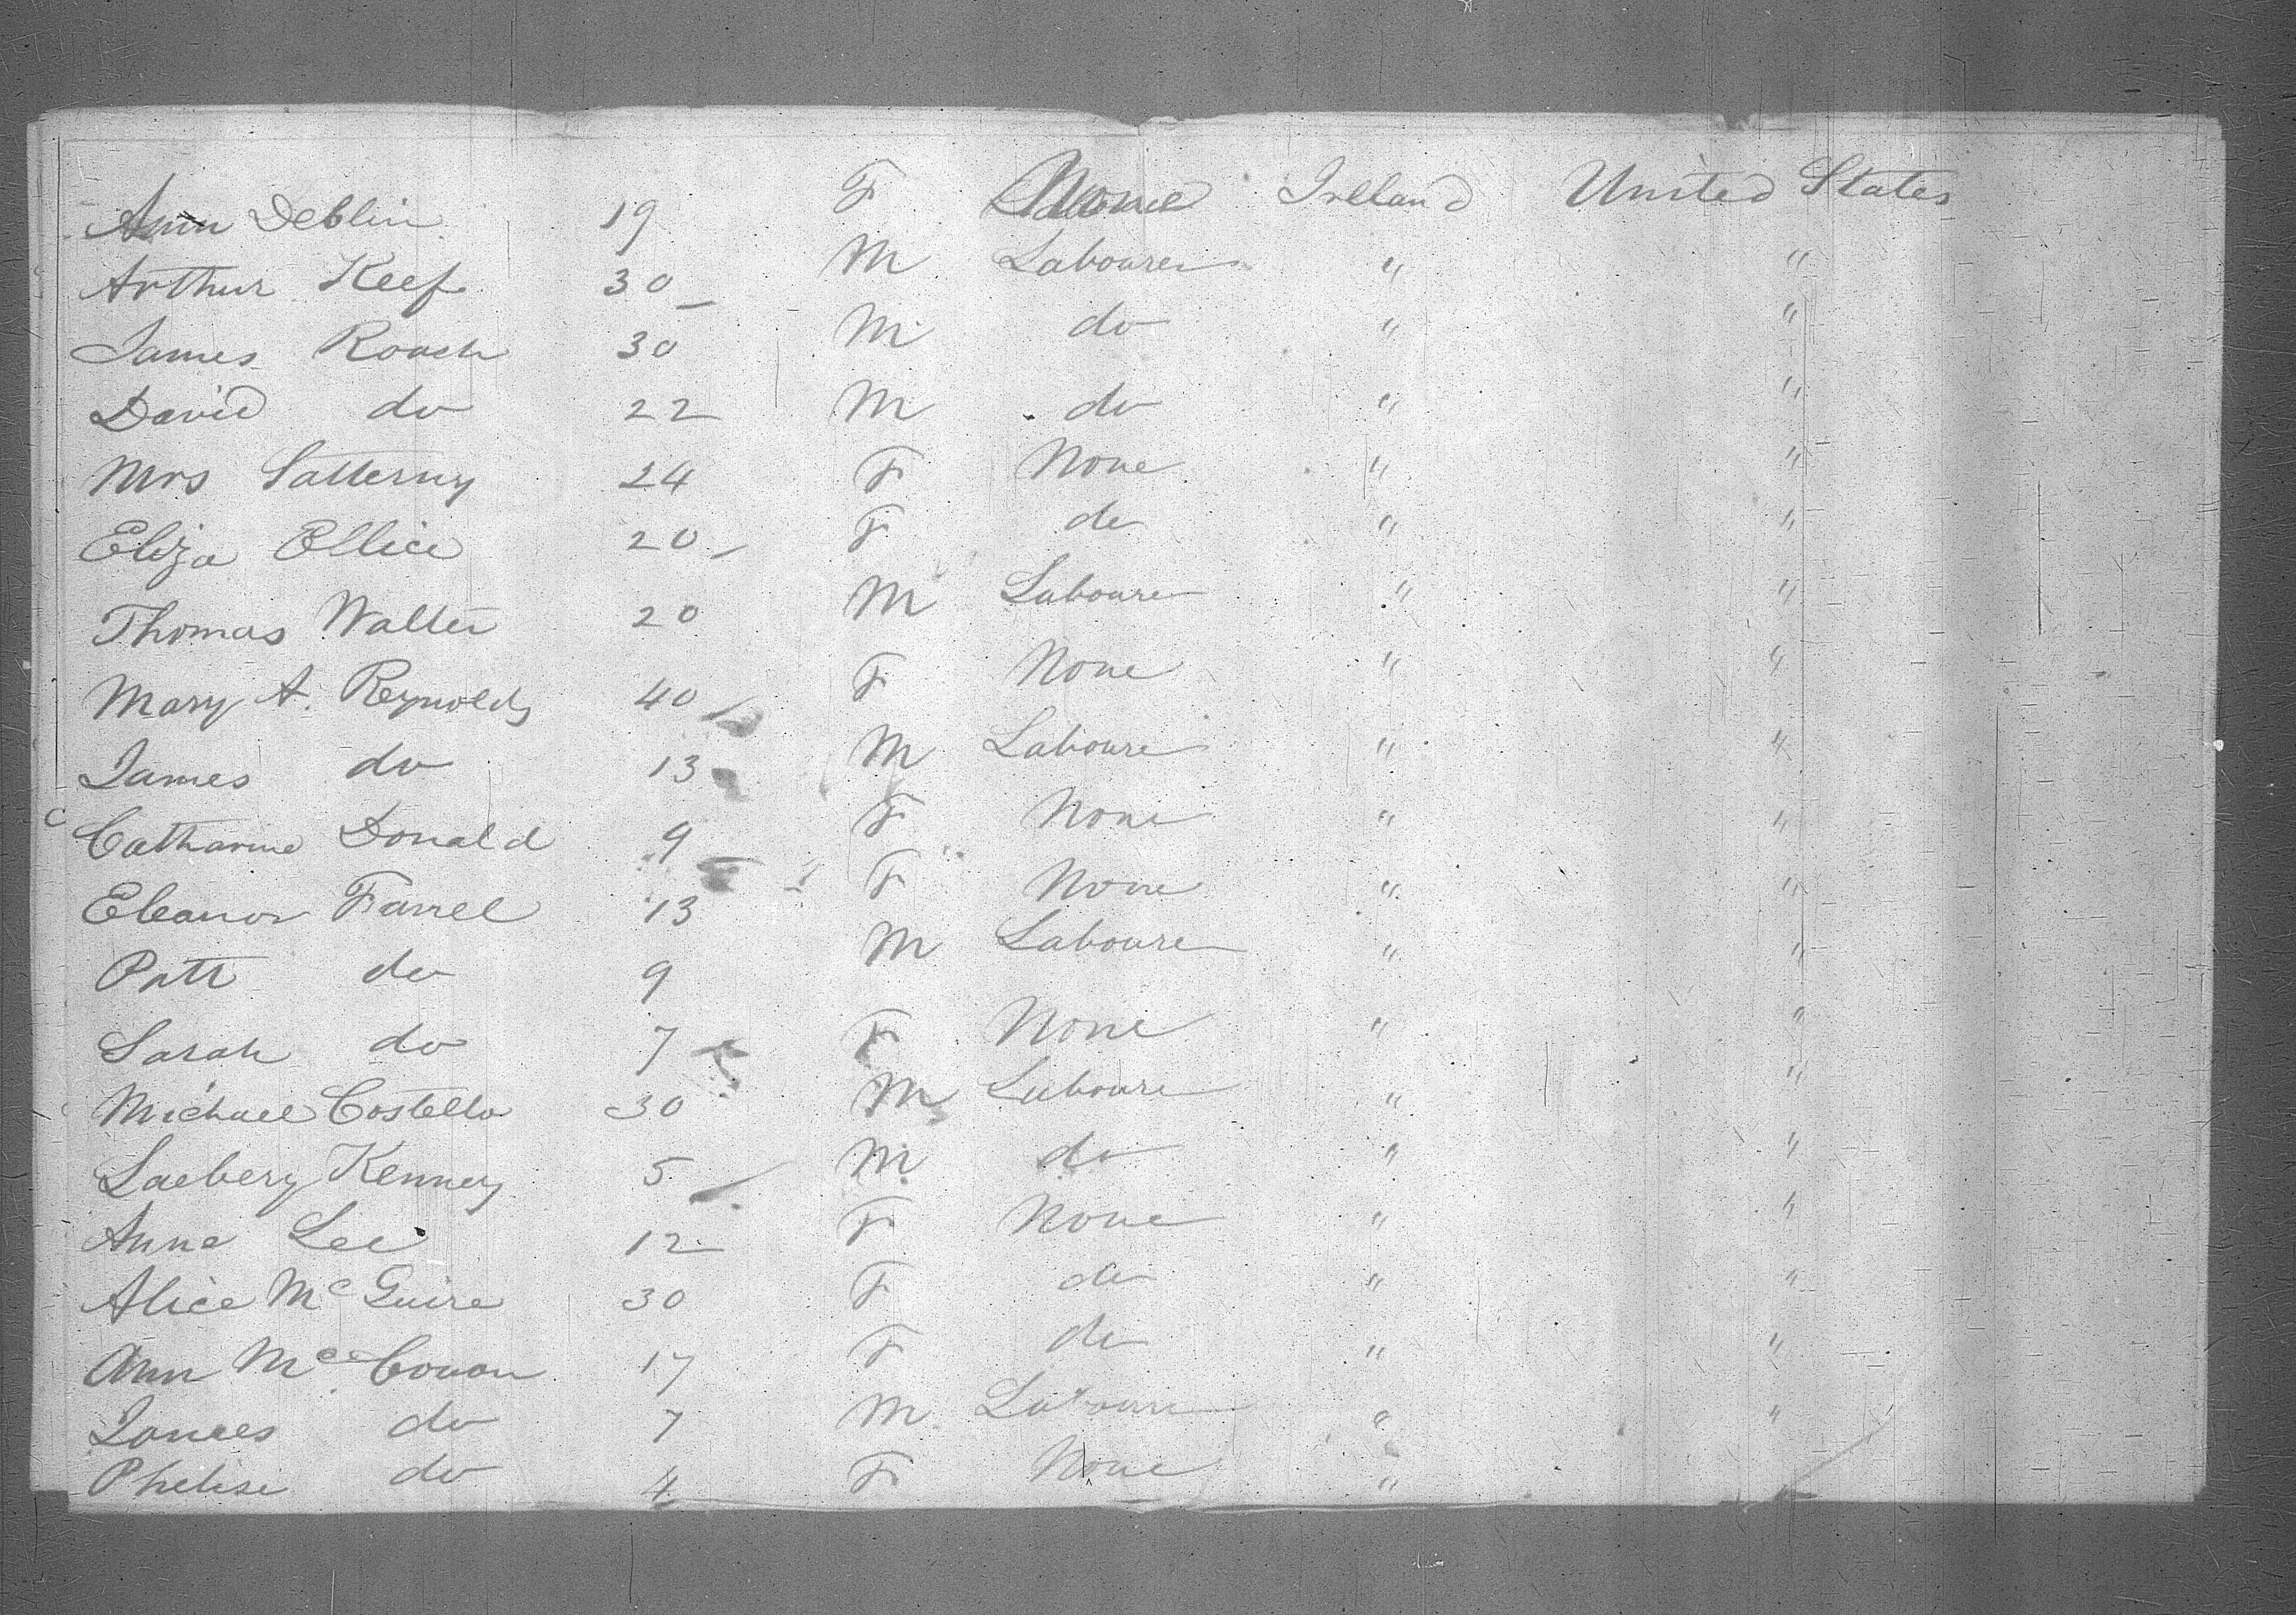 Ann Deblin 19 F None Ireland United States
Arthur Keef 30 M Labourer " "
James Roach 30 M do " "
David do 22 M do " "
Mrs Satterny 24 F None " "
Eliza Ellice 20 F do " "
Thomas Walter 20 M Labourer " "
Mary A. Reynolds 40 F None " "
James do 13 M Labourer " "
Catharine Donald 9 F None " "
Eleanor Farrel 13 F None " "
Patt do 9 M Labourer " "
Sarah do 7 F None " "
Michael Costello 30 M Labourer " "
Kenney 5 M do " "
Anne Lee 12 F None " "
Alice McGuire 30 F do " "
Ann Mc 17 F do " "
do 7 M Labourer " "
do 4 F None "